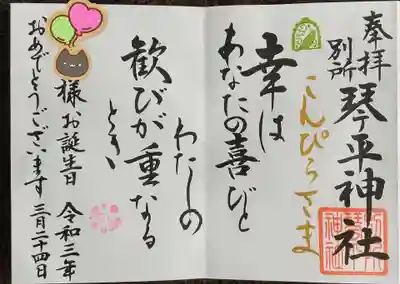 奉拝
別所
琴平神社
こんぴらさま
幸は
あなたの喜びと
わたしの
歓びが重なる
とき
様お誕生日 令和三年
おめでとうございます 三月二十四日